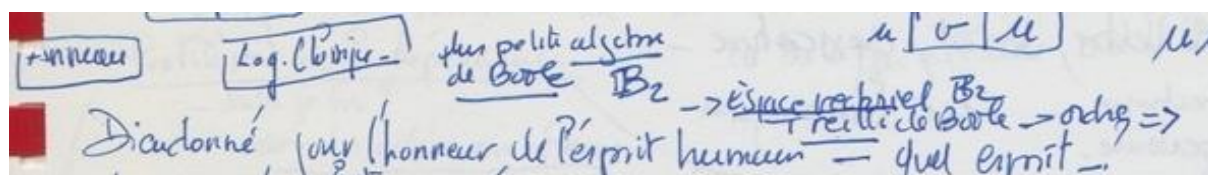 + anneau Log. Classique - plus petite algèbre u | v | u u,
de Boole B₂ -> Espace vectoriel B₂
+ treillis de Boole -> ordre =>
Dieudonné, pour l'honneur de l'esprit humain — quel esprit -